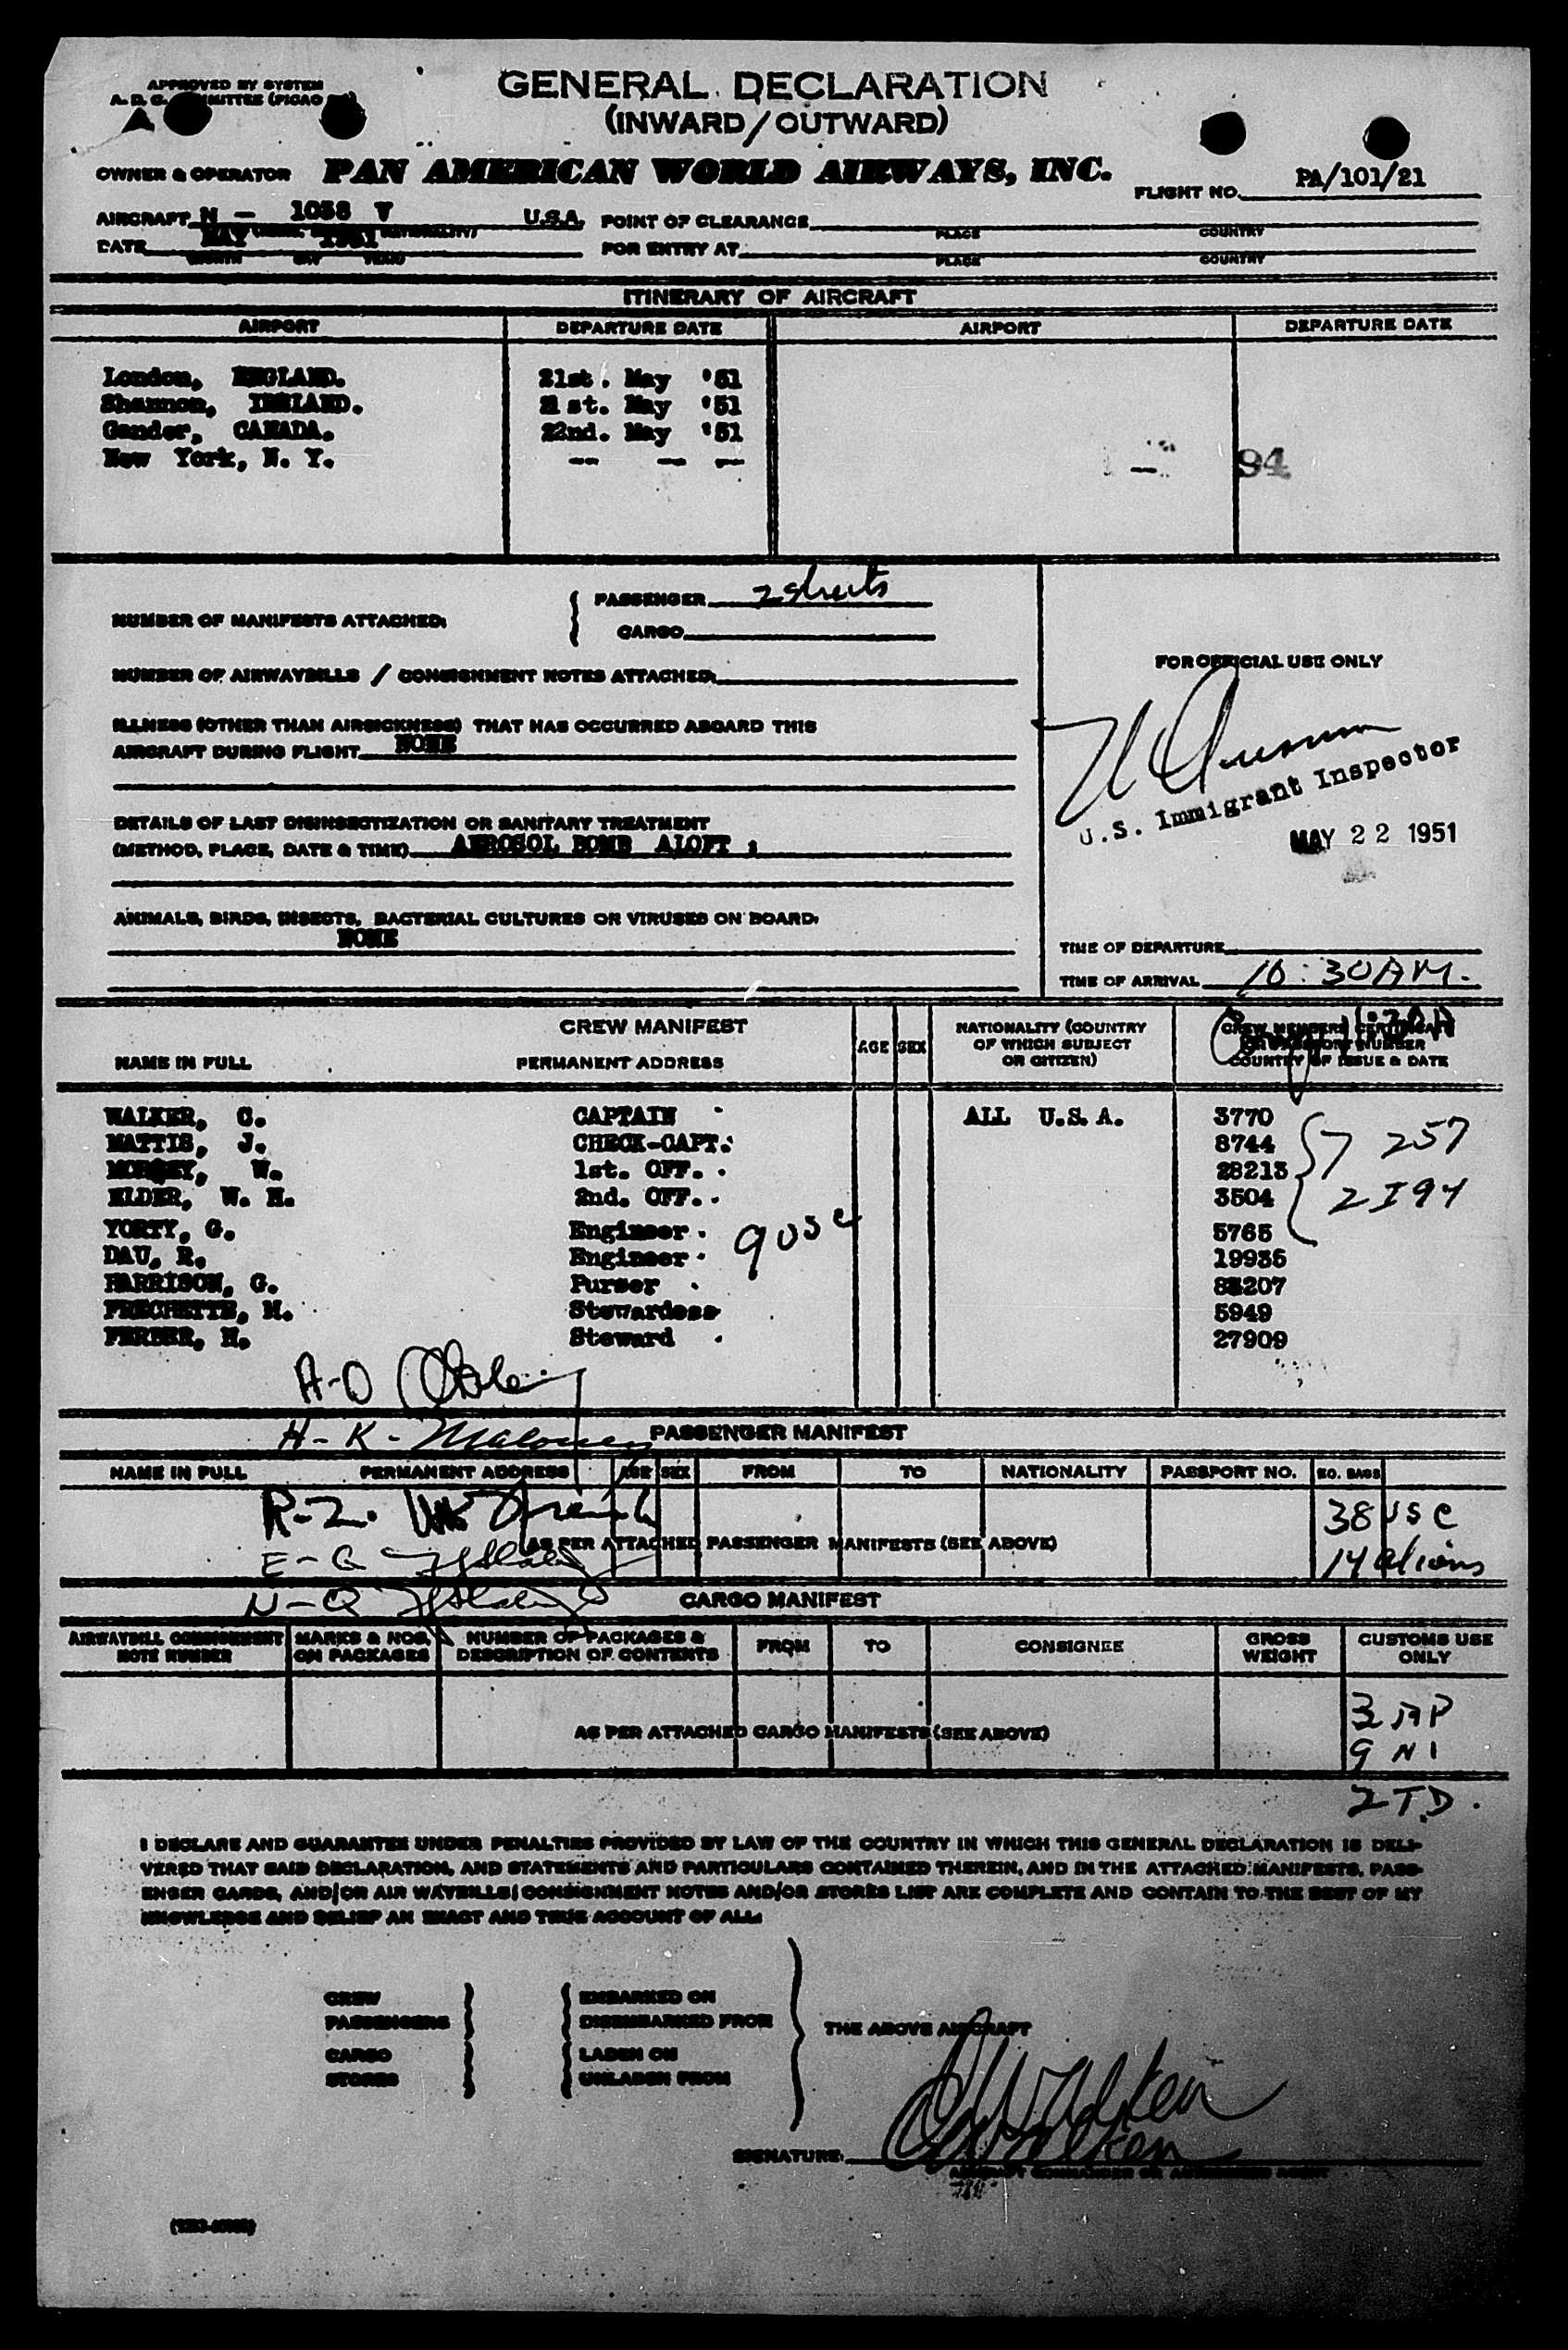 APPROVED BY SYSTEM
GENERAL DECLARATION
(INWARD/OUTWARD)
OWNER & OPERATOR PAN AMERICAN WORLD AIRWAYS, INC.
FLIGHT NO. PA/101/21
AIRCRAFT N - 1038 V U.S.A. POINT OF CLEARANCE
PLACE COUNTRY
DATE MAY 1951 FOR ENTRY AT
MONTH DAY YEAR PLACE COUNTRY
ITINERARY OF AIRCRAFT
AIRPORT DEPARTURE DATE AIRPORT DEPARTURE DATE
London, ENGLAND. 21st. May '51
Shannon, IRELAND. 21st. May '51
Gander, CANADA. 22nd. May '51
New York, N. Y. -- -- --
94
NUMBER OF MANIFESTS ATTACHED: PASSENGER 2 sheets
CARGO
NUMBER OF AIRWAYBILLS / CONSIGNMENT NOTES ATTACHED:
ILLNESS (OTHER THAN AIRSICKNESS) THAT HAS OCCURRED ABOARD THIS
AIRCRAFT DURING FLIGHT NONE
DETAILS OF LAST DISINSECTIZATION OR SANITARY TREATMENT
(METHOD, PLACE, DATE & TIME) AEROSOL BOMB ALOFT :
ANIMALS, BIRDS, INSECTS, BACTERIAL CULTURES OR VIRUSES ON BOARD.
NONE
FOR OFFICIAL USE ONLY
U.S. Immigrant Inspector
MAY 22 1951
TIME OF DEPARTURE
TIME OF ARRIVAL 10:30 AM.
CREW MANIFEST
NAME IN FULL PERMANENT ADDRESS AGE SEX NATIONALITY (COUNTRY OF WHICH SUBJECT OR CITIZEN) CREW MEMBERS CERTIFICATE OR PASSPORT NUMBER COUNTRY OF ISSUE & DATE
WALKER, C. CAPTAIN ALL U.S.A. 3770
MATTIS, J. CHECK-CAPT. 8744
W. 1st. OFF. 28213
ELDER, W. H. 2nd. OFF. 3504
YORTY, G. Engineer 5765
DAU, R. Engineer 19936
HARRISON, G. Purser
FRECHETTE, M. Stewardess 5949
FERBER, H. Steward 27909
9 USC
7 257
2 I94
A-D
H-K- Maloney
PASSENGER MANIFEST
NAME IN FULL PERMANENT ADDRESS AGE SEX FROM TO NATIONALITY PASSPORT NO. NO. BAGS
R-Z.
38 USC
AS PER ATTACHED PASSENGER MANIFESTS (SEE ABOVE)
E-G
14 aliens
N-Q
CARGO MANIFEST
AIRWAYBILL CONSIGNMENT NOTE NUMBER MARKS & NOS. ON PACKAGES NUMBER OF PACKAGES & DESCRIPTION OF CONTENTS FROM TO CONSIGNEE GROSS WEIGHT CUSTOMS USE ONLY
3 AP
AS PER ATTACHED CARGO MANIFESTS (SEE ABOVE)
9 NI
2 T.D.
I DECLARE AND GUARANTEE UNDER PENALTIES PROVIDED BY LAW OF THE COUNTRY IN WHICH THIS GENERAL DECLARATION IS DELI-
VERED THAT SAID DECLARATION, AND STATEMENTS AND PARTICULARS CONTAINED THEREIN, AND IN THE ATTACHED MANIFESTS, PASS-
ENGER CARDS, AND/OR AIR WAYBILLS/CONSIGNMENT NOTES AND/OR STORES LIST ARE COMPLETE AND CONTAIN TO THE BEST OF MY
KNOWLEDGE AND BELIEF AN EXACT AND TRUE ACCOUNT OF ALL:
CREW EMBARKED ON
PASSENGERS DISEMBARKED FROM
THE ABOVE AIRCRAFT
CARGO LADEN ON
STORES UNLADEN FROM
SIGNATURE:
AIRCRAFT COMMANDER OR AUTHORIZED AGENT